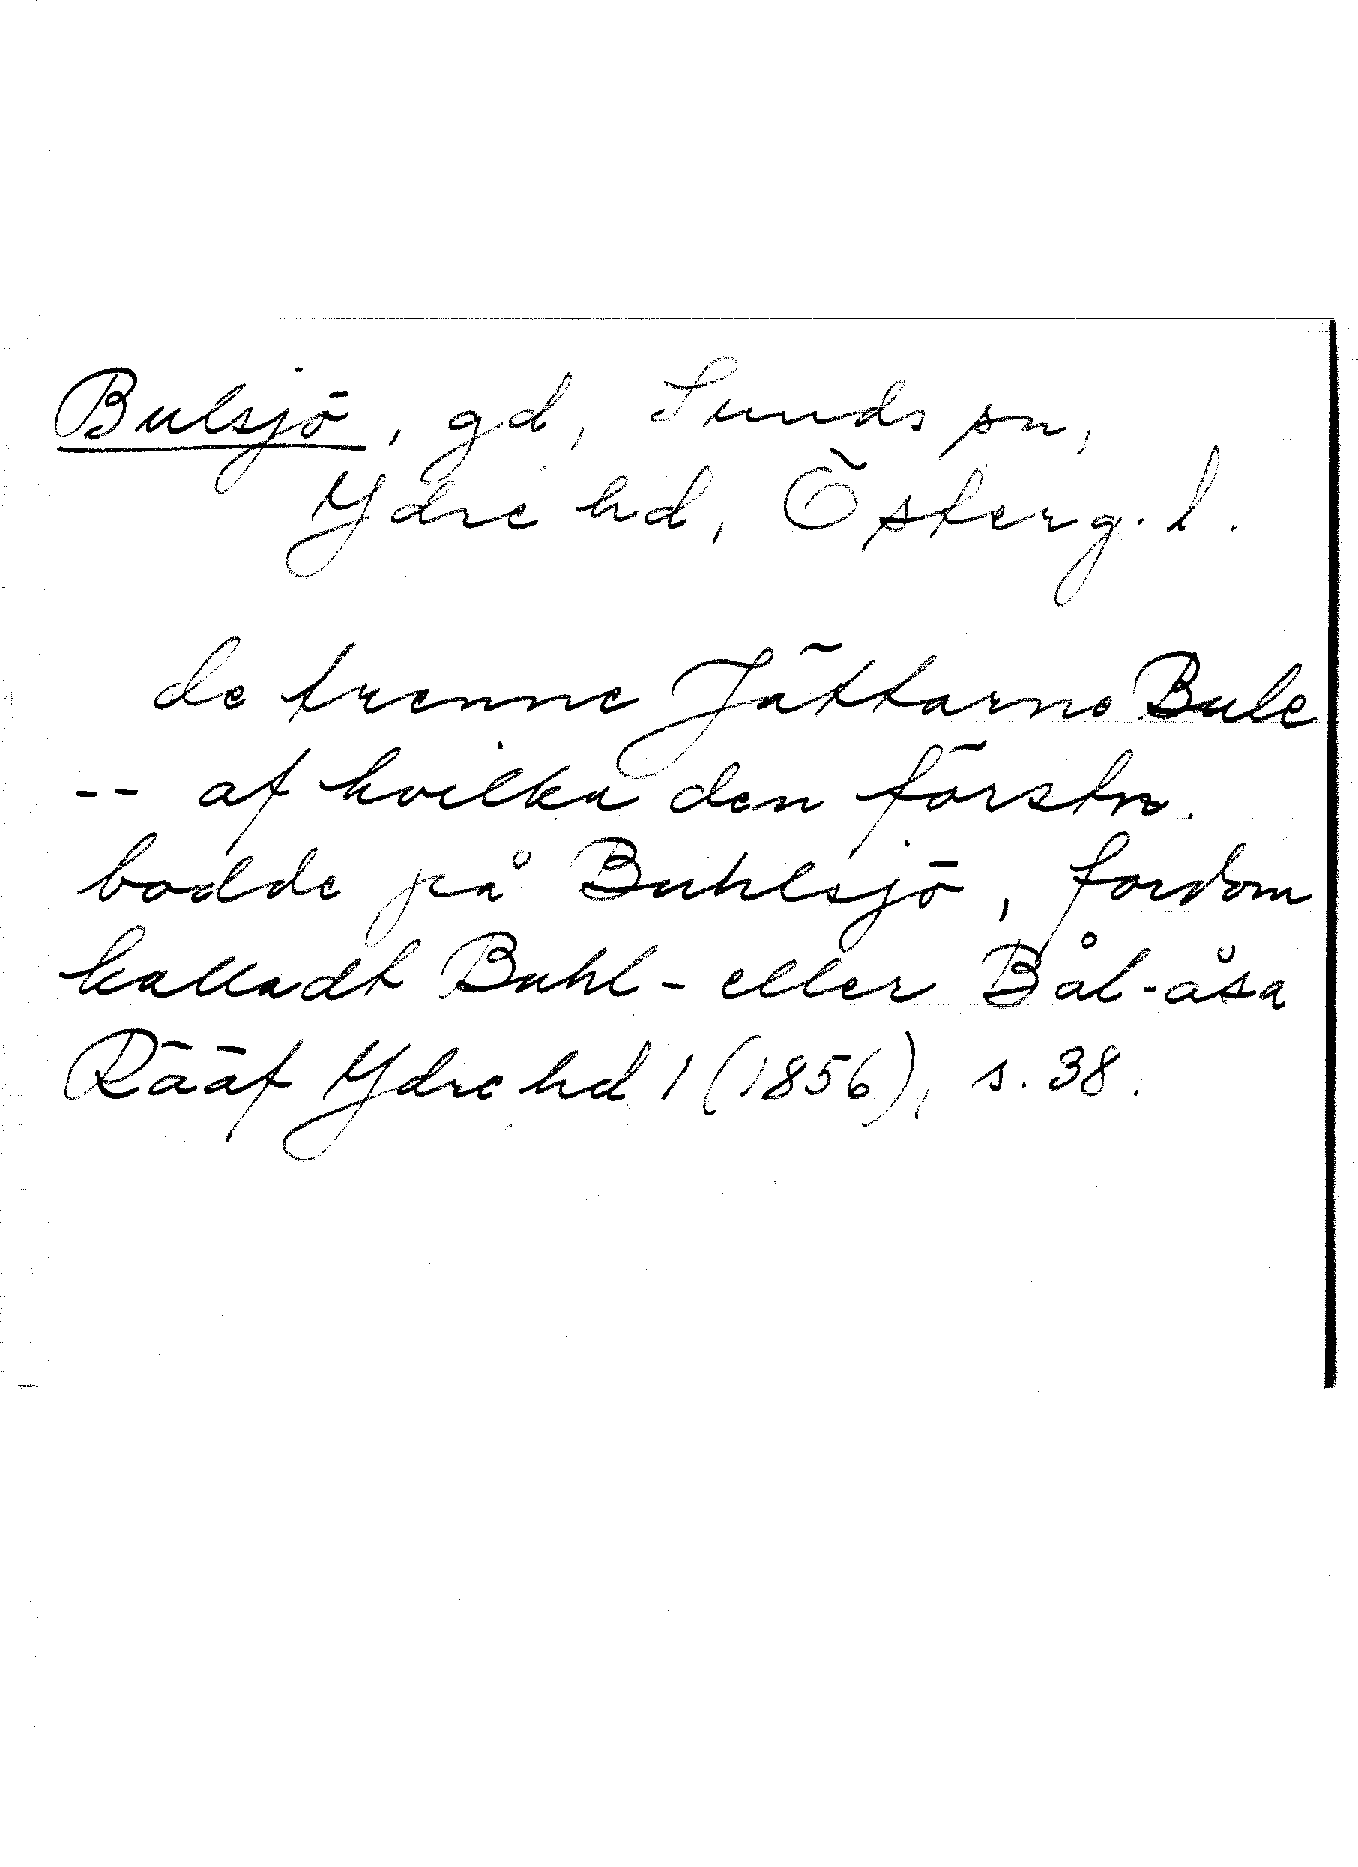 Bulsjö, gd, Sunds sn,
Ydre hd, Österg. l.
de trenne Jättarne Bule
-- af hvilka den förstn.
bodde på Buhlsjö, fordom
kalladt Buhl- eller Bål-åsa
Rääf Ydre hd 1 (1856), s. 38.